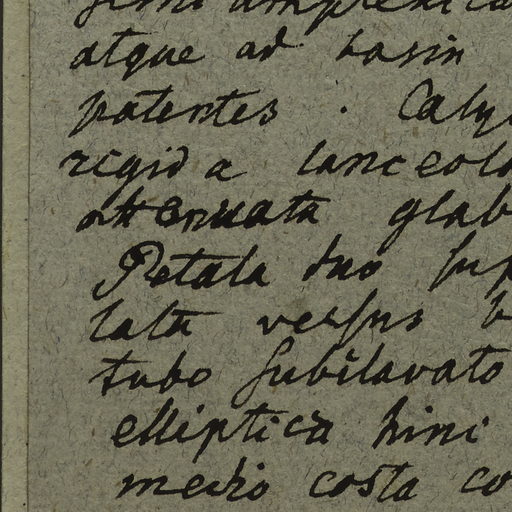 atque ad basin
patentes . Caly
rigida lanceola
attenuata glab
Petala duo sup
lata versus b
tubo subclavato
elliptica hinc
medio costa co